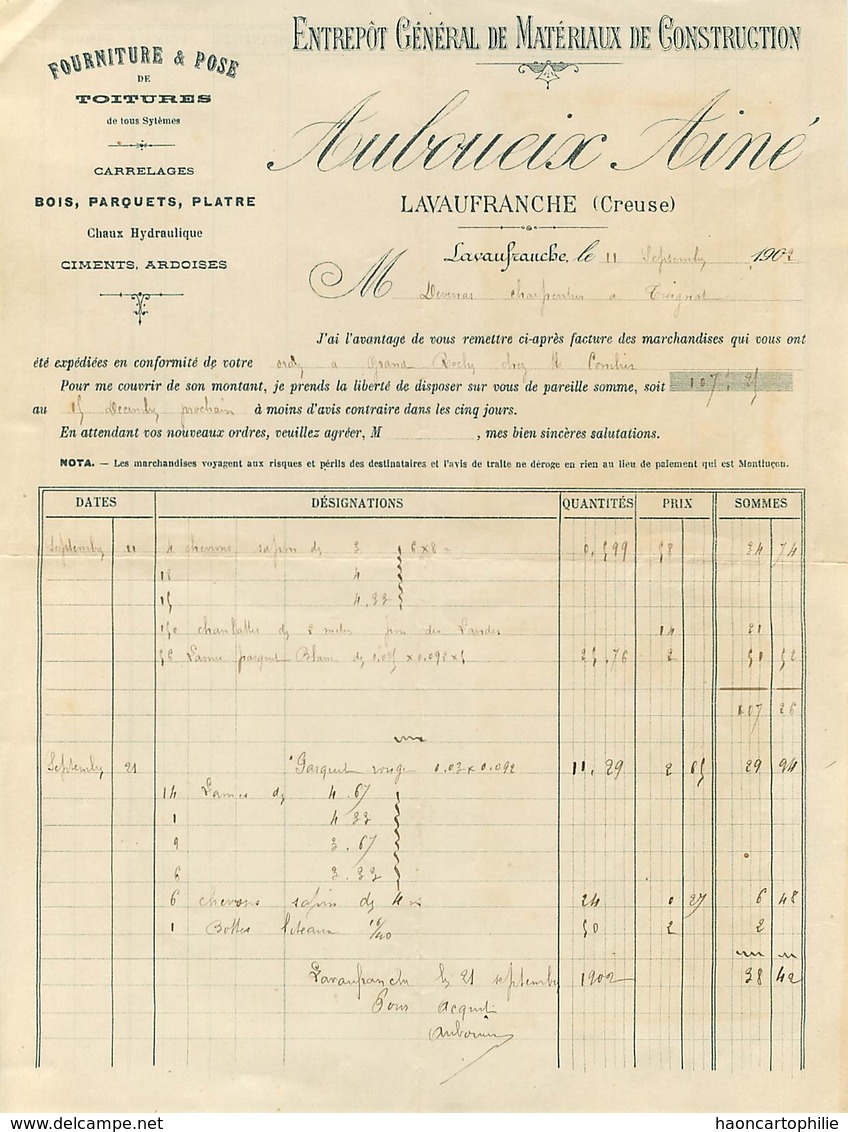 FOURNITURE & POSE
DE
TOITURES
de tous Sytèmes
CARRELAGES
BOIS, PARQUETS, PLATRE
Chaux Hydraulique
CIMENTS, ARDOISES
ENTREPÔT GÉNÉRAL DE MATÉRIAUX DE CONSTRUCTION
Auboueix Ainé
LAVAUFRANCHE (Creuse)
Lavaufranche, le 11 Septembre 1902
M charpentier a Treignat
J'ai l'avantage de vous remettre ci-après facture des marchandises qui vous ont
été expédiées en conformité de votre ordre a Grand chez M
Pour me couvrir de son montant, je prends la liberté de disposer sur vous de pareille somme, soit 107.25
au 15 Decembre prochain à moins d'avis contraire dans les cinq jours.
En attendant vos nouveaux ordres, veuillez agréer, M , mes bien sincères salutations.
NOTA. — Les marchandises voyagent aux risques et périls des destinataires et l'avis de traite ne déroge en rien au lieu de paiement qui est Montluçon.
DATES DÉSIGNATIONS QUANTITÉS PRIX SOMMES
Septembre 11 4 chevrons sapin de 3 6x8 0.599 58 34 74
18 4
15 4.33
150 chanlattes de 2 metres pin des Landes 14 21
56 Lames parquet Blanc de 0.092 x 5 25.76 2 51 52
107 26
Septembre 21 Parquet rouge 0.03 x 0.092 11.29 2 65 29 94
14 Lames de 4.67
1 4.33
9 3.67
6 3.33
6 chevrons sapin de 4 m 24 0 27 6 48
1 Bottes liteaux 50 2 2
Lavaufranche le 21 septembre 1902 38 42
Pour acquit
haoncartophilie